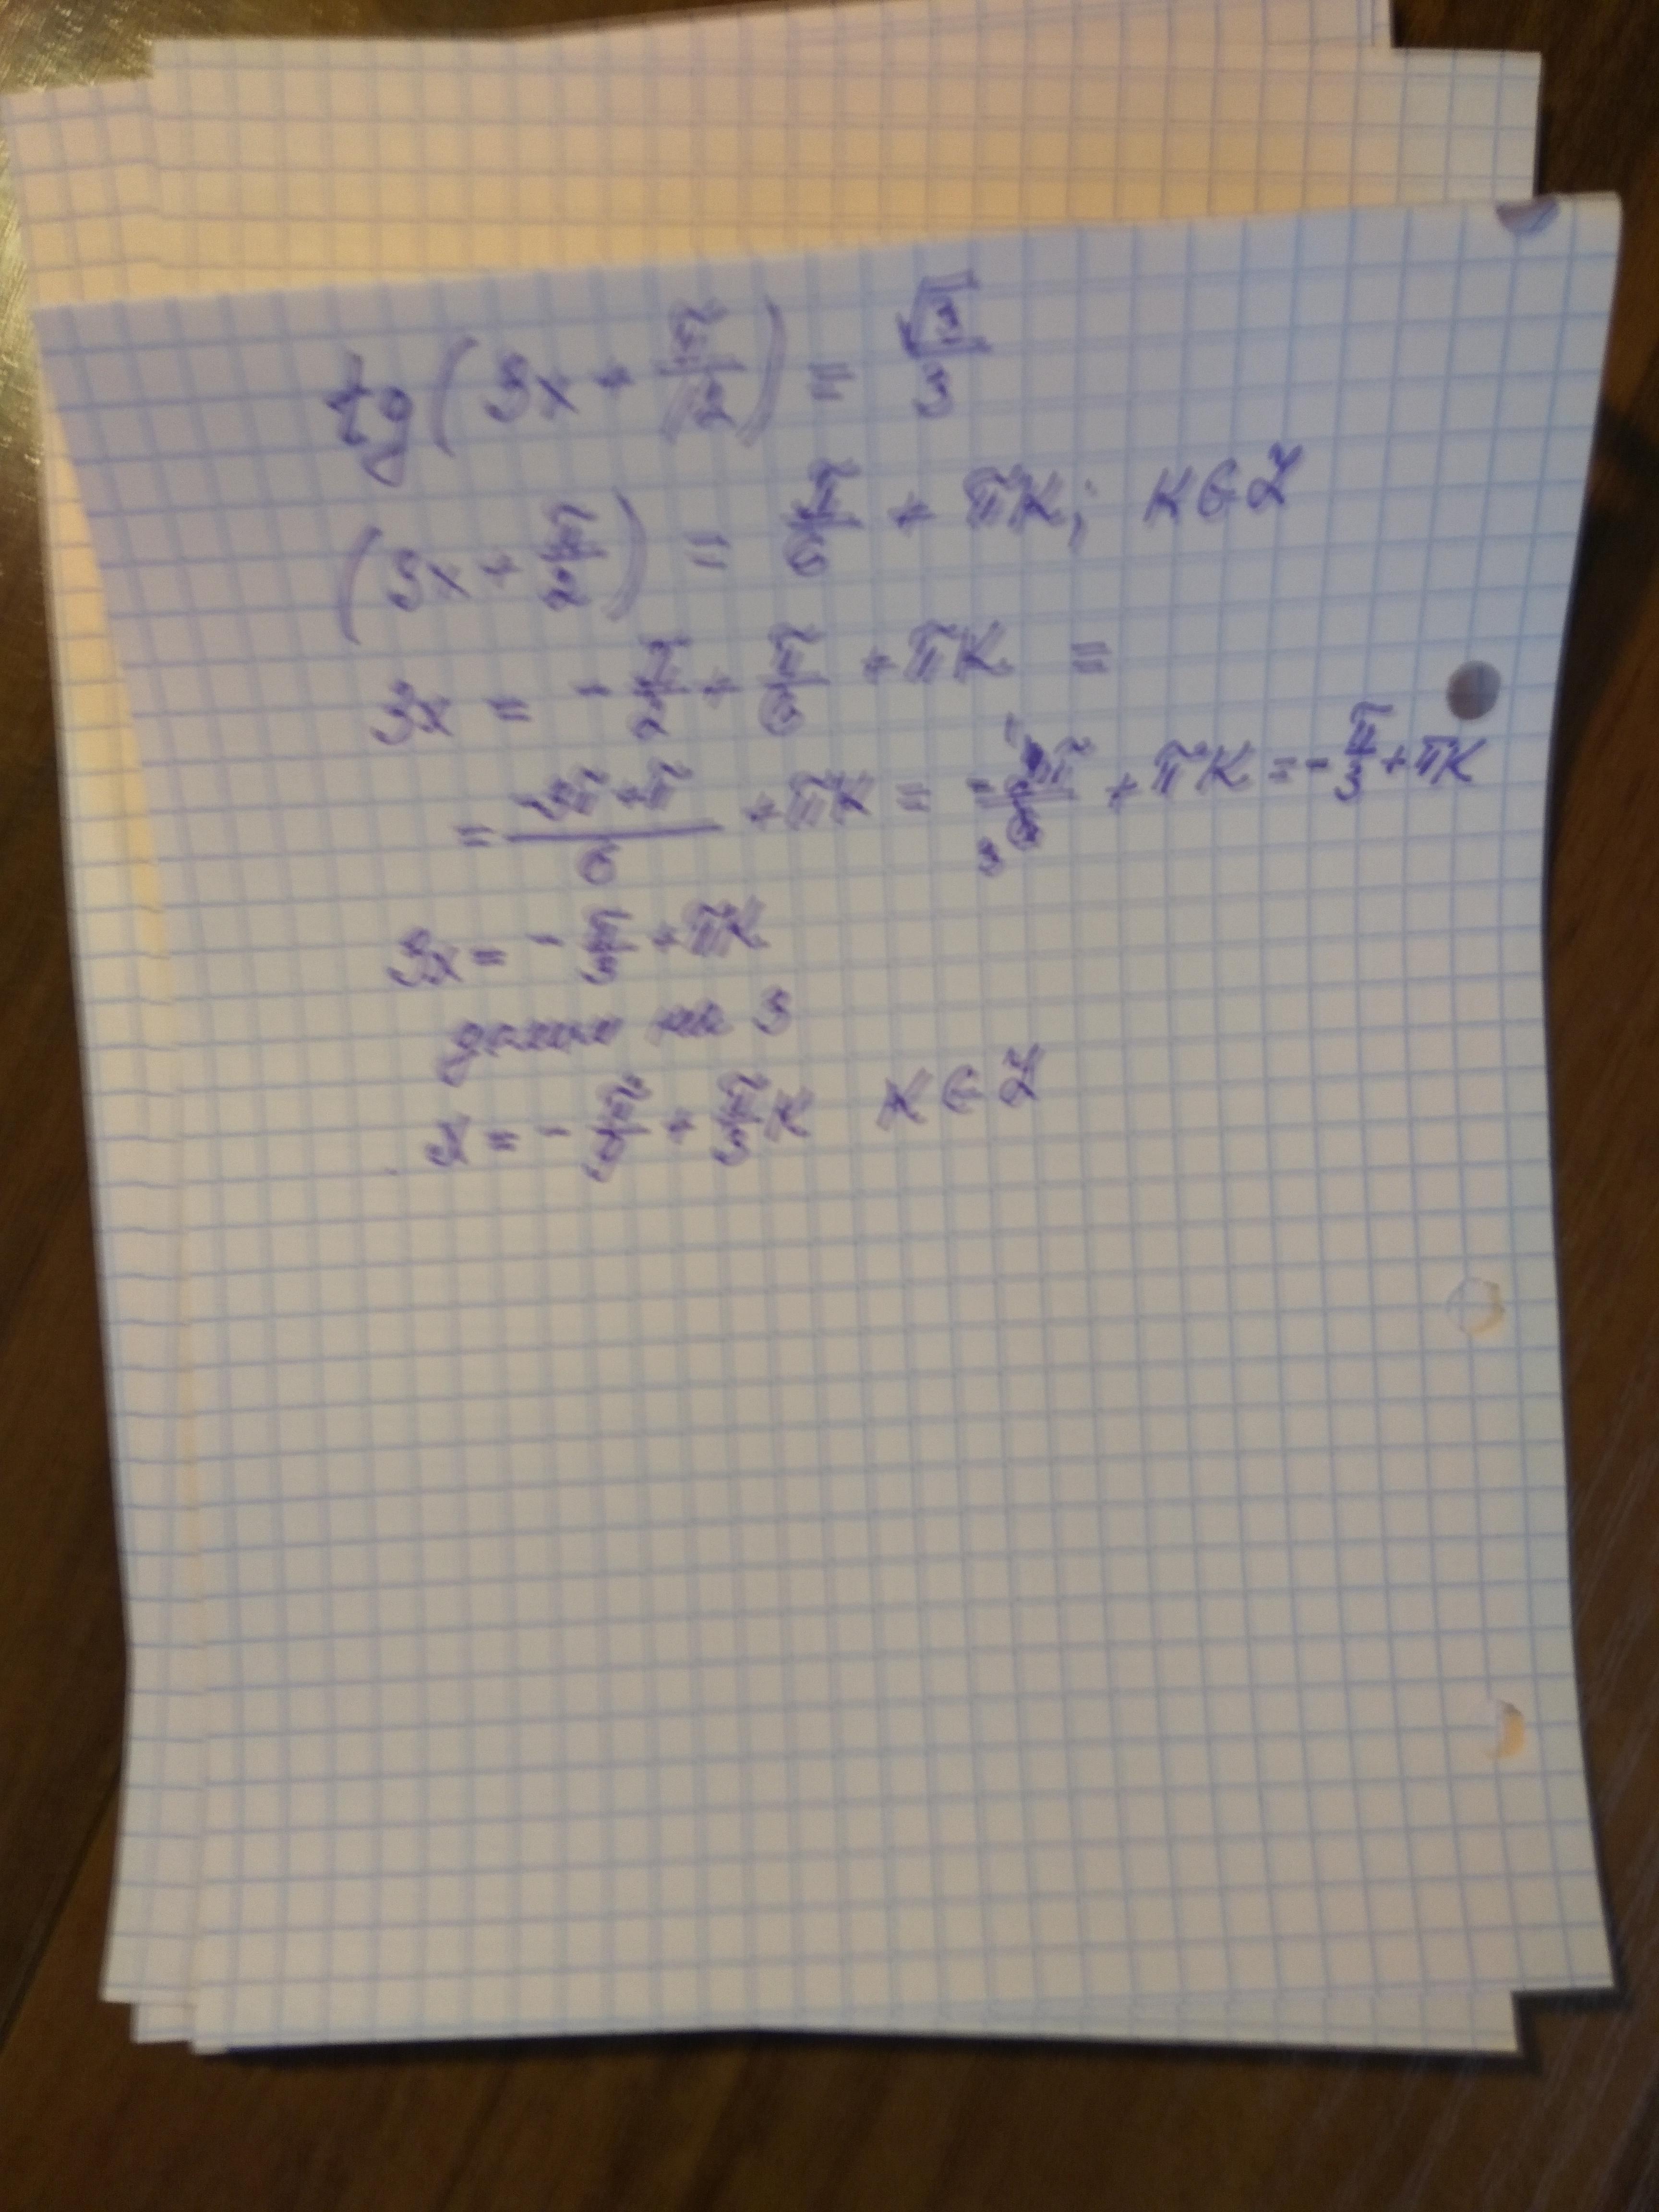 tg(3x + π/2) = √3/3
(3x + π/2) = π/6 + πK; K∈Z
3x = - π/2 + π/6 + πK =
= (-3π+π)/6 + πK = -2π/6 + πK = - π/3 + πK
3x = - π/3 + πK
делим на 3
x = - π/9 + π/3 K K∈Z